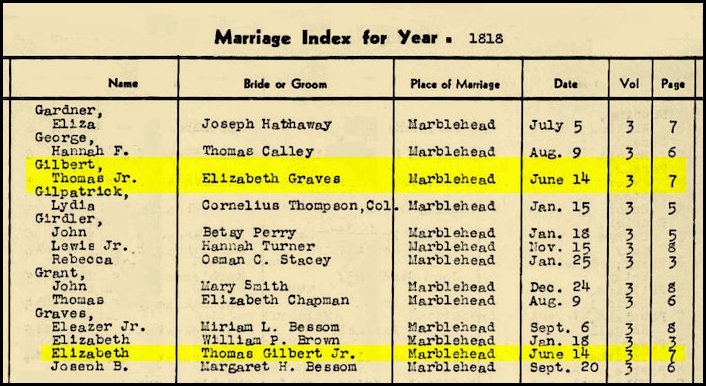 Marriage Index for Year. 1818
Name Bride or Groom Place of Marriage Date Vol Page
Gardner,
Eliza Joseph Hathaway Marblehead July 5 3 7
George,
Hannah F. Thomas Calley Marblehead Aug. 9 3 6
Gilbert,
Thomas Jr. Elizabeth Graves Marblehead June 14 3 7
Gilpatrick,
Lydia Cornelius Thompson,Col. Marblehead Jan. 15 3 5
Girdler,
John Betsy Perry Marblehead Jan. 18 3 5
Lewis Jr. Hannah Turner Marblehead Nov. 15 3 8
Rebecca Osman C. Stacey Marblehead Jan. 25 3 3
Grant,
John Mary Smith Marblehead Dec. 24 3 8
Thomas Elizabeth Chapman Marblehead Aug. 9 3 6
Graves,
Eleazer Jr. Miriam L. Bessom Marblehead Sept. 6 3 8
Elizabeth William P. Brown Marblehead Jan. 18 3 3
Elizabeth Thomas Gilbert Jr. Marblehead June 14 3 7
Joseph B. Margaret H. Bessom Marblehead Sept. 20 3 6